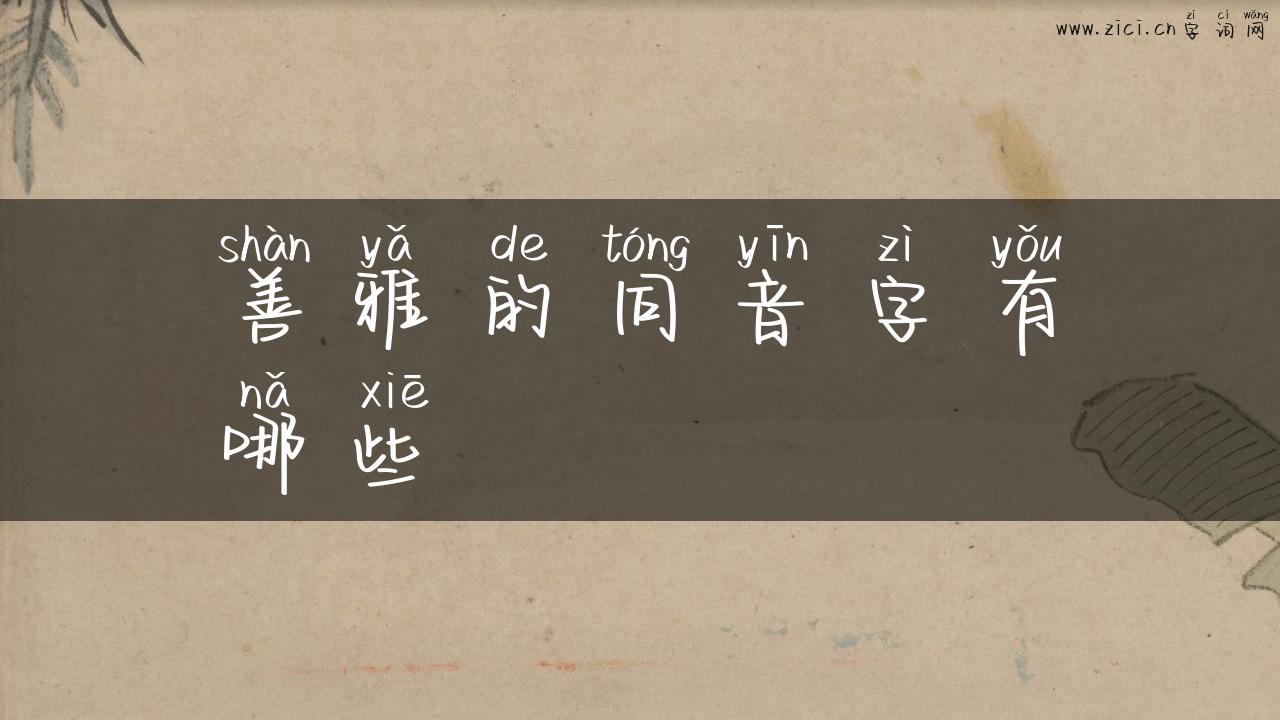 zì cí wǎng
www.zici.cn 字 词 网
shàn yǎ de tóng yīn zì yǒu
善 雅 的 同 音 字 有
nǎ xiē
哪 些